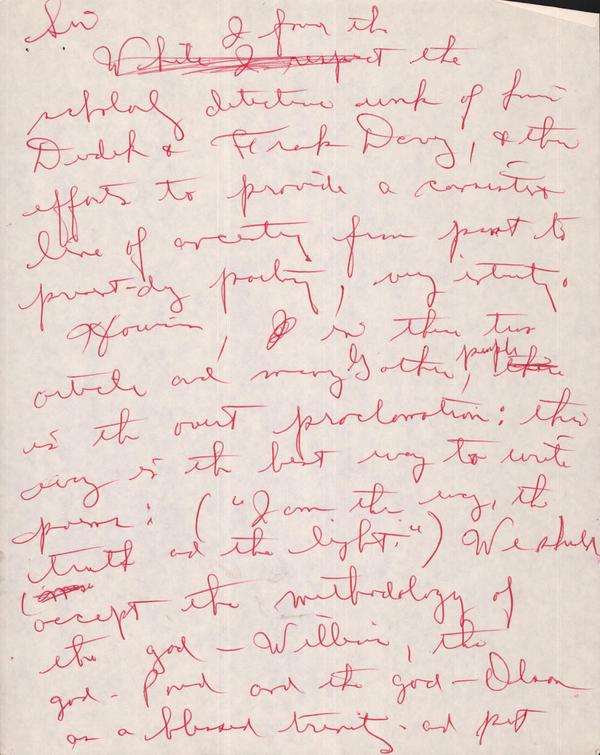 Sir
I find the
While I respect the
scholarly detective work of Louis
Dudek & Frank Davey, & their
efforts to provide a consistent
line of ancestry from past to
present-day poetry, very
However, in these two
article and many other, people
is the overt proclamation: this
way is the best way to write
poems: ("I am the way, the
truth and the light.") We should
accept the methodology of
the god-William, the
god-Pound and the god-Olson
as a blessed trinity - and put